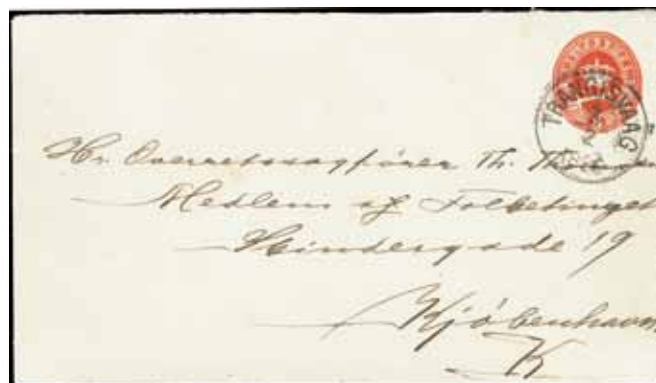 TRANGISVAAG
Hr. Overretssagfører Th.
Medlem af Folketinget
19
Kjöbenhavn
K